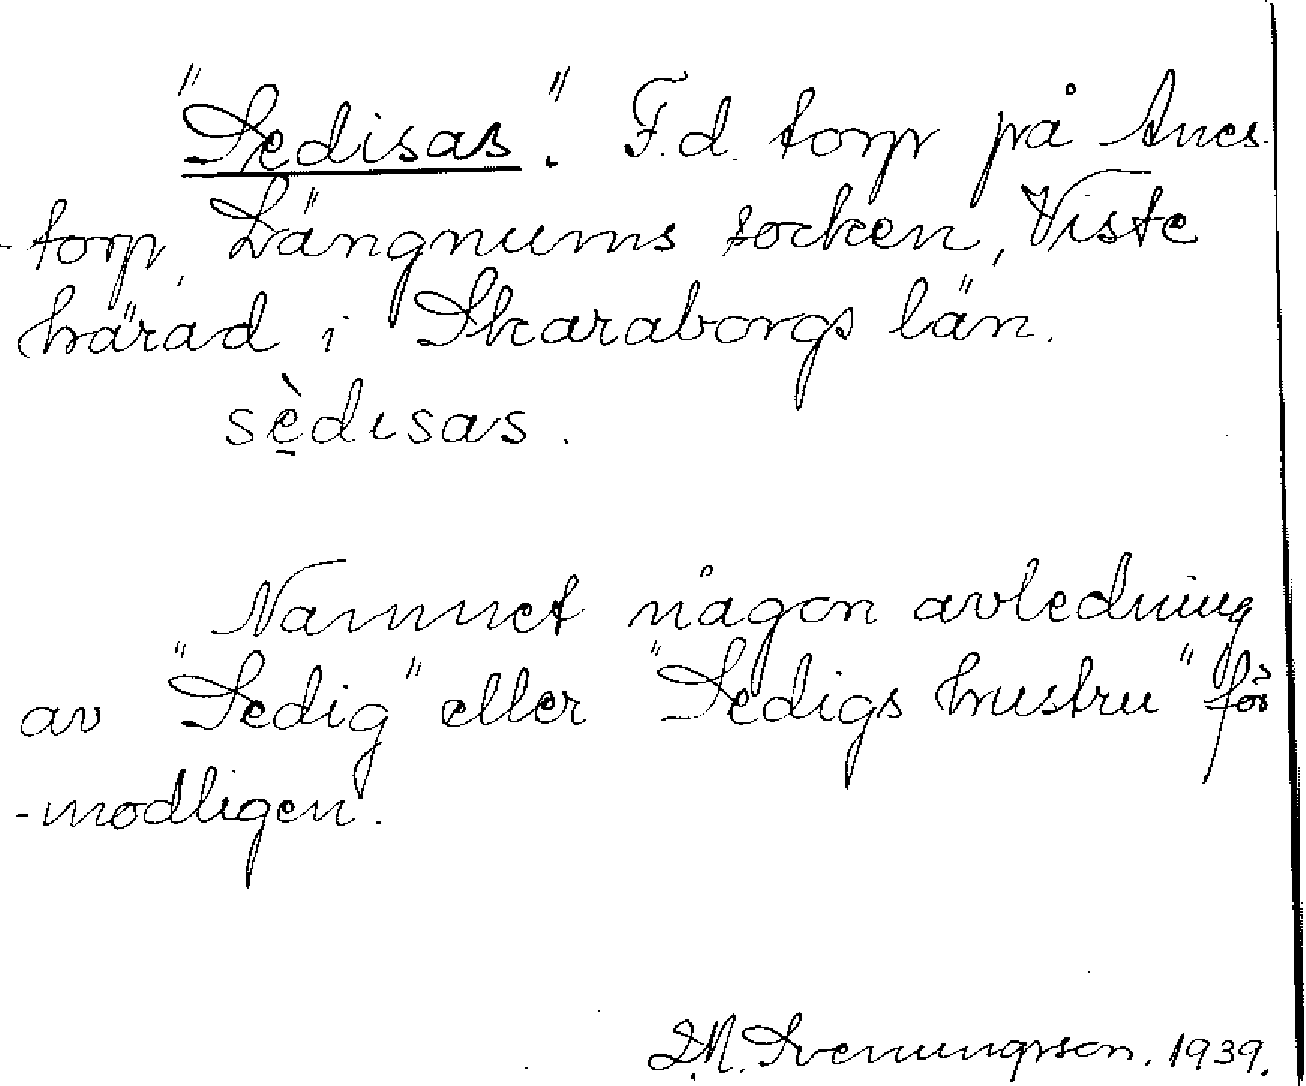 "Sedisas". F.d. torp på Anes-
-torp, Längnums socken, Viste
härad i Skaraborgs län.
sèdisas.
Namnet någon avledning
av "Sedig" eller "Sedigs hustru" för
-modligen.
Svenungsson. 1939.